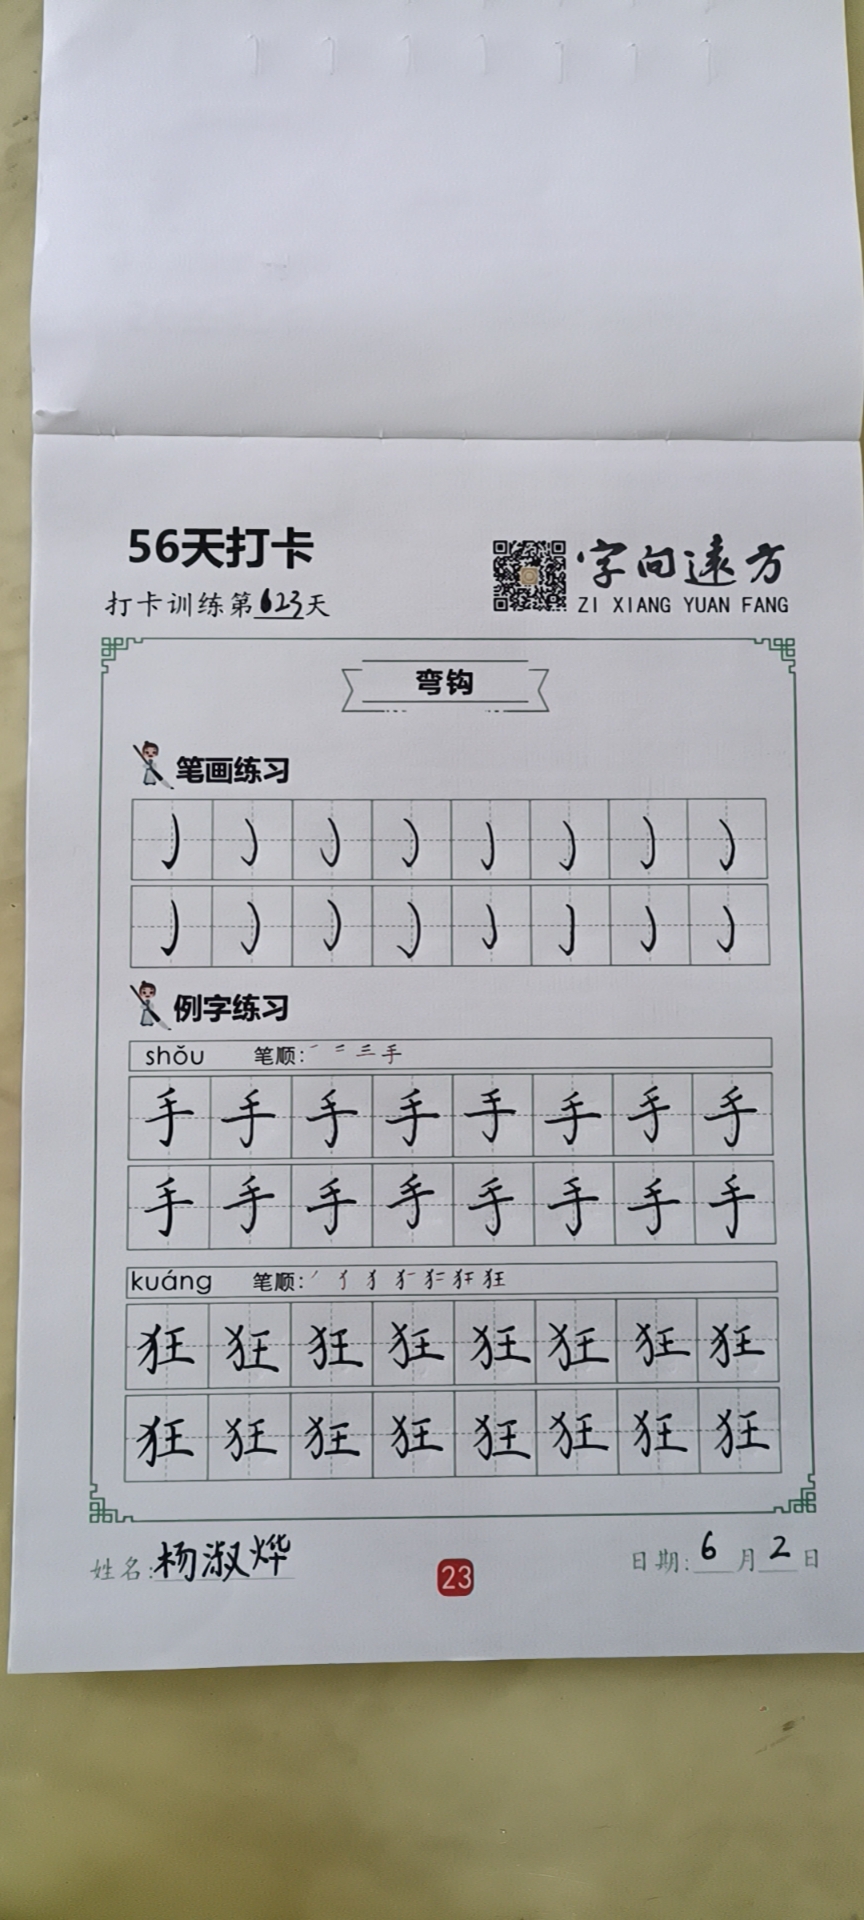 56天打卡
字向远方
打卡训练第623天
ZI XIANG YUAN FANG
弯钩
笔画练习
例字练习
shǒu 笔顺: 一 二 三 手
手 手 手 手 手 手 手 手
手 手 手 手 手 手 手 手
kuáng 笔顺:
狂 狂 狂 狂 狂 狂 狂 狂
狂 狂 狂 狂 狂 狂 狂 狂
姓名: 杨淑烨
23
日期: 6月2日